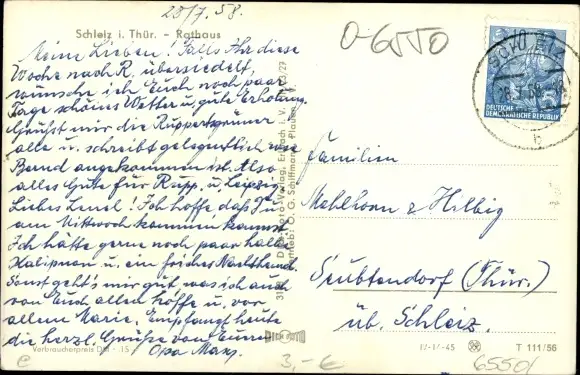 28/7.58.
Schleiz i. Thür. - Rathaus
Meine Lieben! Falls Ihr diese
Woche nach R. übersiedelt,
wünsche ich Euch noch paar
Tage schönes Wetter u. gute Erholung.
Grüßt mir die Ruppertsgrüner
alle u. schreibt gelegentlich wie
Bernd angekommen ist. Also
alles Gute für Rupp. u. Leipzig
Liebes Lenel! Ich hoffe daß Du
am Mittwoch kommen kannst.
Ich hätte gerne noch paar halbe
u. ein
Sonst geht's mir gut was ich auch
von Euch allen hoffe u. vor
allem Marie. Empfangt heute
die herzl. Grüße von Eurem
Opa Max.
Verbraucherpreis DM -.15
O-6550
DEUTSCHE
DEMOKRATISCHE REPUBLIK
b
Familien
Mehlhorn & Helbig
Seubtendorf (Thür.)
üb. Schleiz.
IV-14-45
T 111/56
3,- €
6550/
e